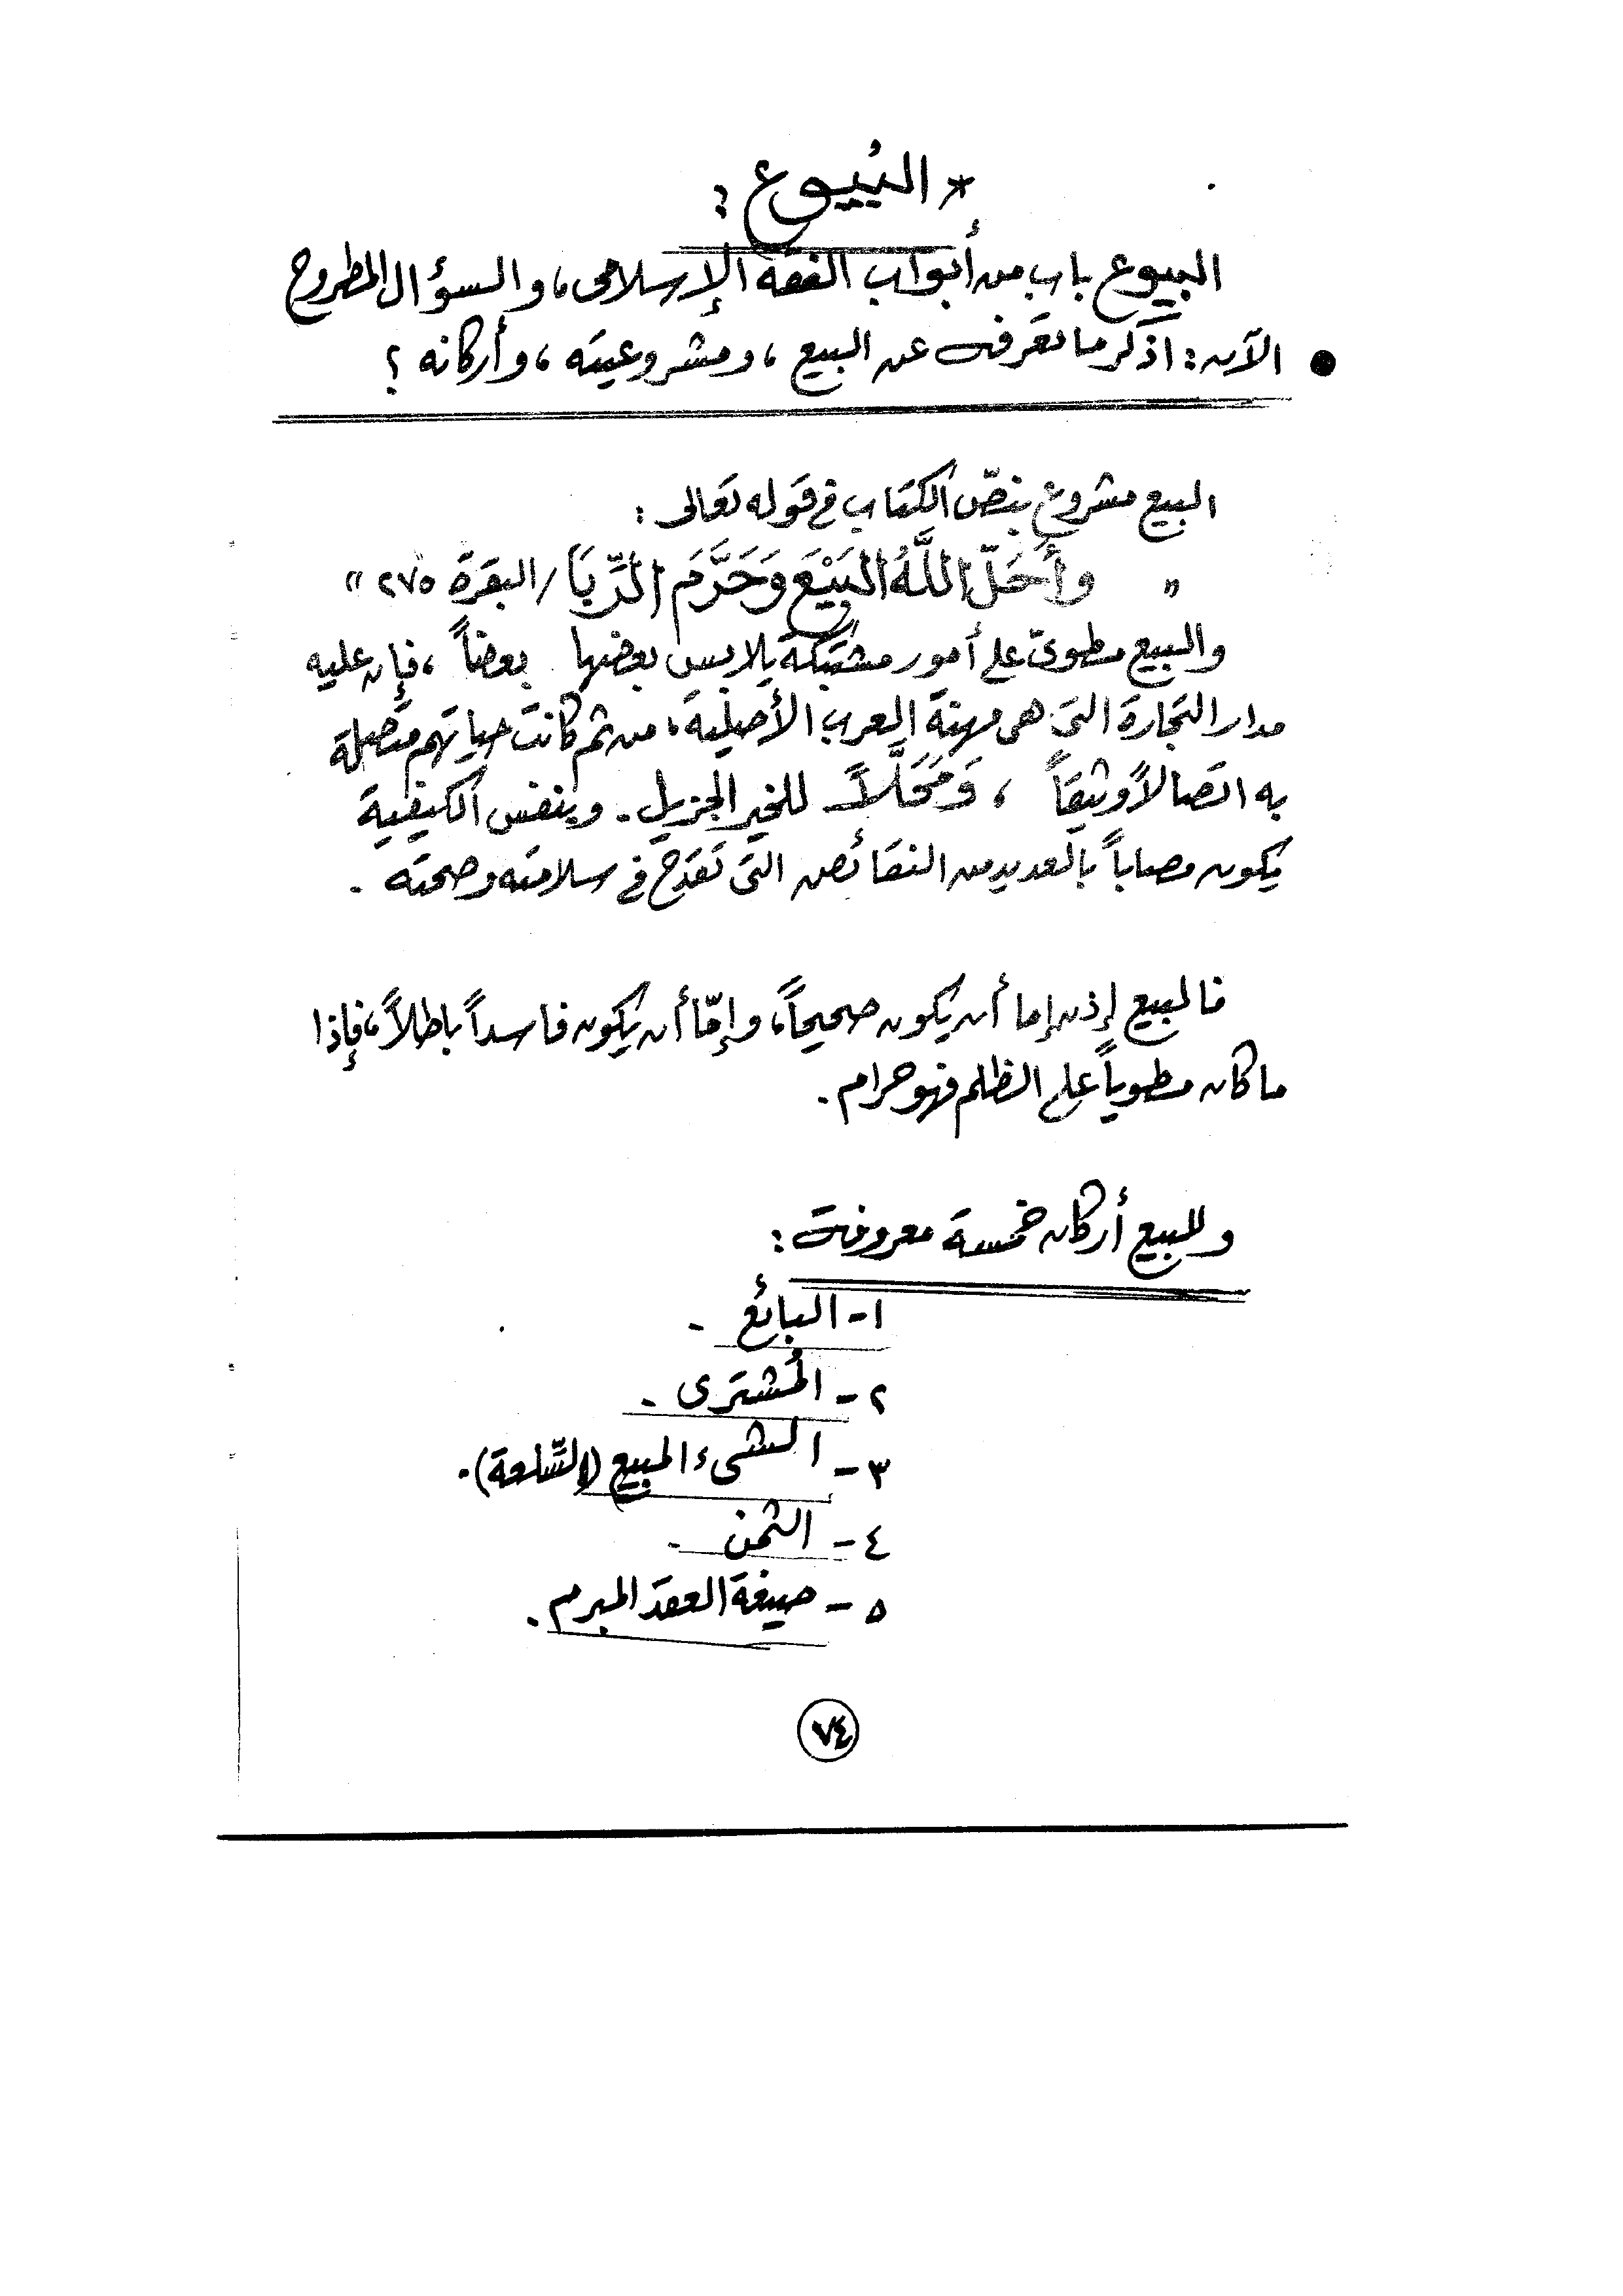 * البُيوع :
البيوع باب من أبواب الفقه الإسلامى ، والسؤال المطروح
● الآن : اذكر ما تعرفه عن البيع ، ومشروعيته ، وأركانه ؟
البيع مشروع بنصّ الكتاب فى قوله تعالى :
" وأَحَلَّ اللَّهُ البَيْعَ وَحَرَّمَ الرِّبَا / البقرة ٢٧٥ "
والبيع مطوىّ على أمور مشتبكة يلابس بعضها بعضاً ، فإن عليه
مدار التجارة التى هى مهنة العرب الأصلية ، من ثم كانت حياتهم متصلة
به اتصالاً وثيقاً ، وَمَحَلَّاً للخير الجزيل . وبنفس الكيفية
يكون مصاباً بالعديد من النقائص التى تقدح فى سلامته وصحته .
فالبيع إذن إما أن يكون صحيحاً ، وإمّا أن يكون فاسداً باطلاً ، فإذا
ما كان مطوياً على الظلم فهو حرام .
وللبيع أركان خمسة معروفة :
١ - البائع .
٢ - المُشترى .
٣ - الشىء المبيع (السِّلعة) .
٤ - الثمن .
٥ - صيغة العقد المبرم .
٧٤